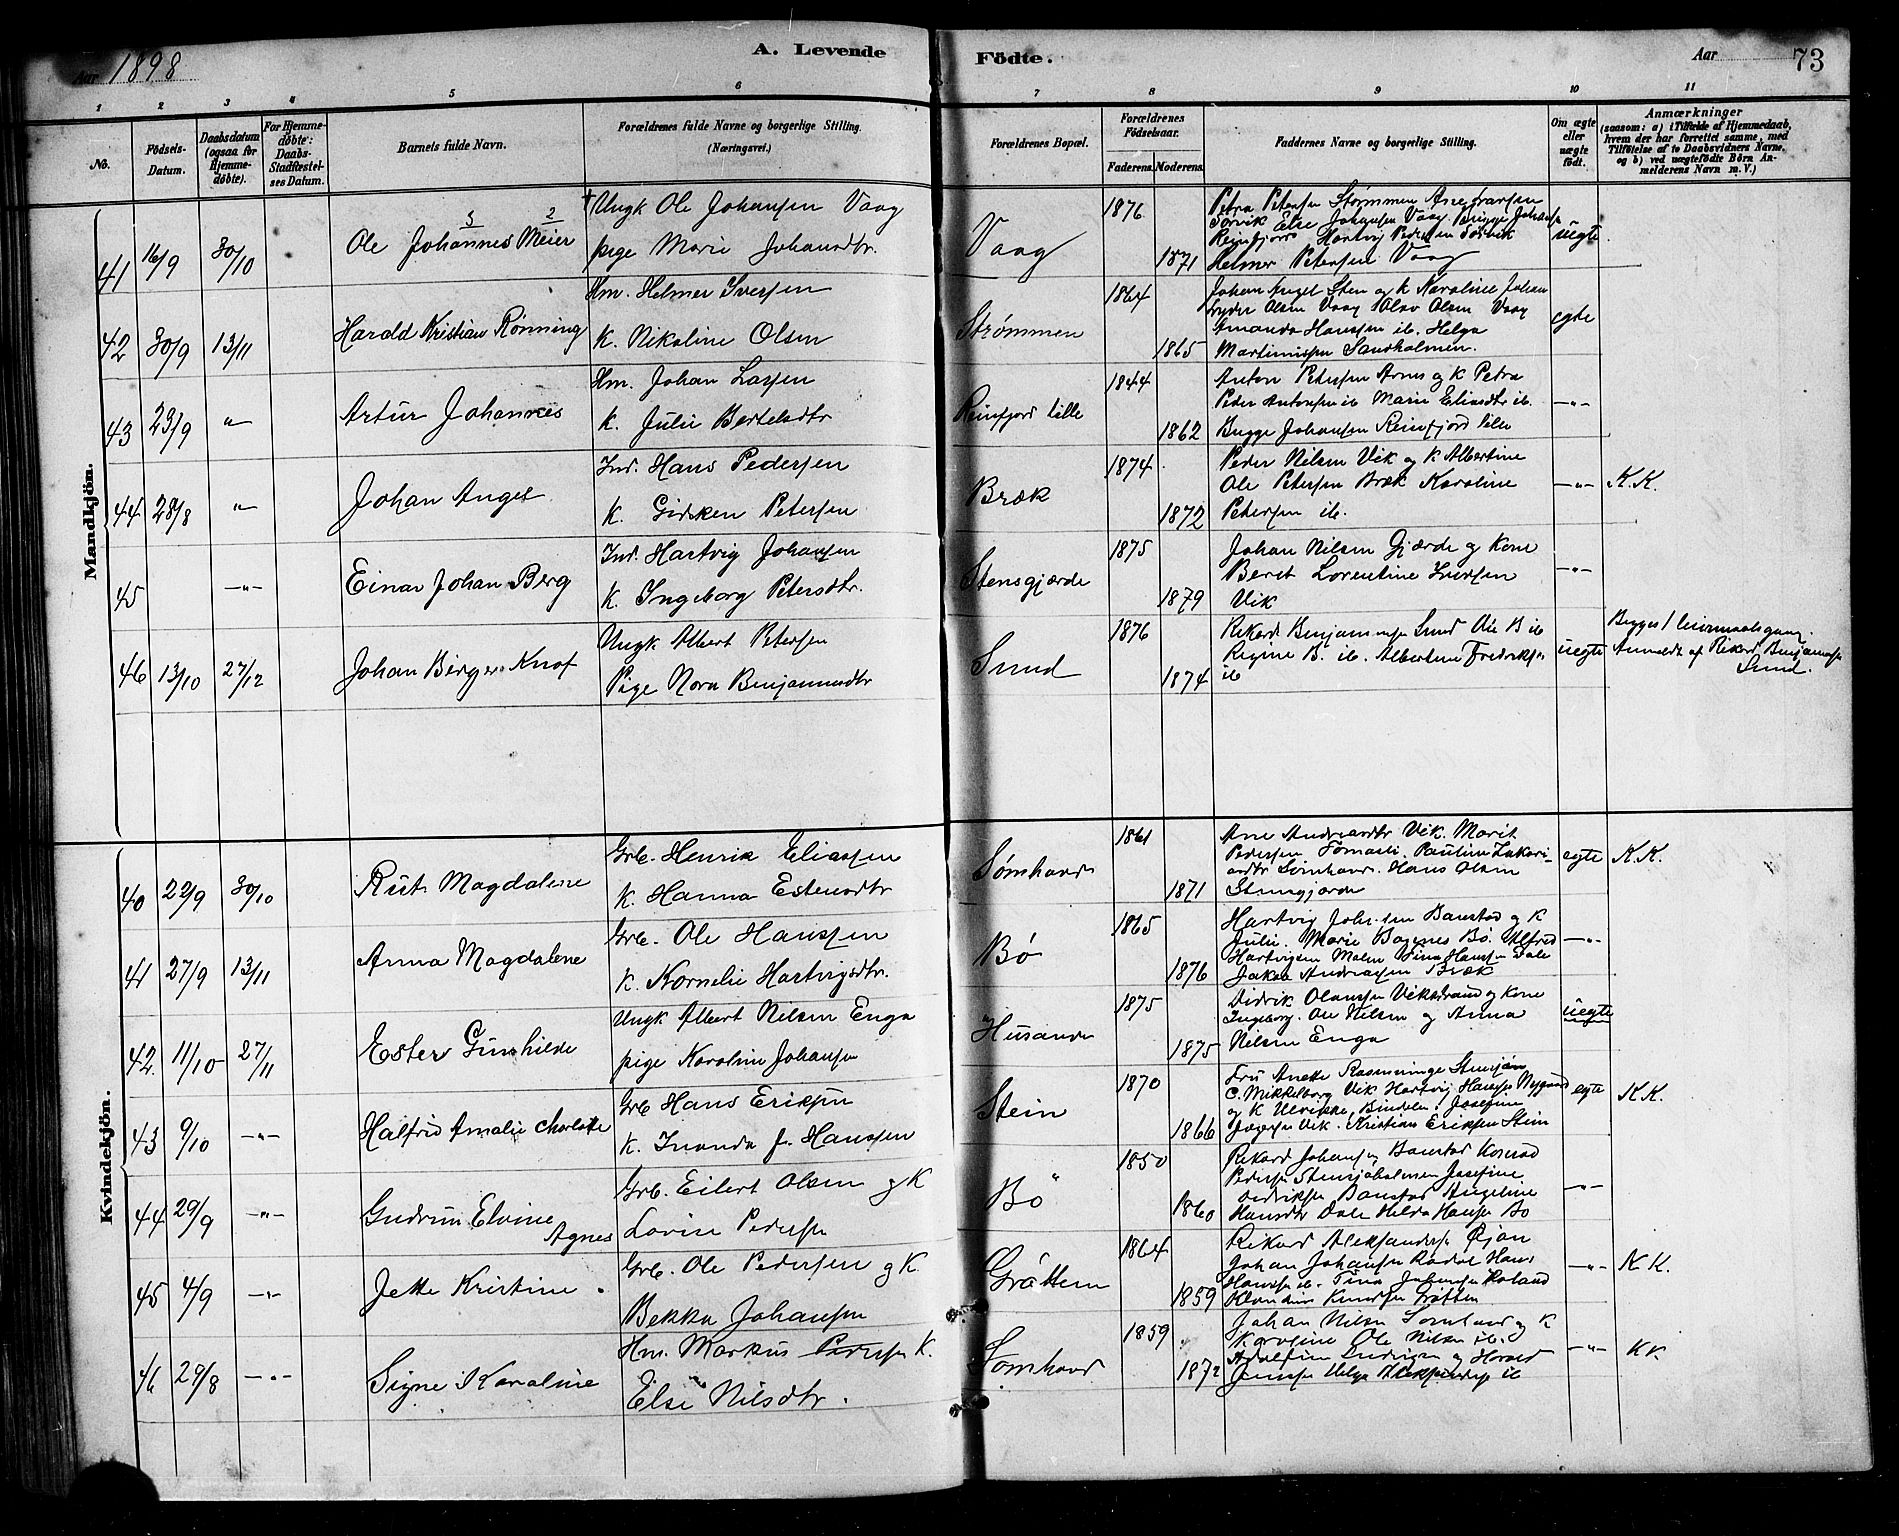 Aar 1898
A. Levende
Födte.
Aar
73
1 2 3 4 5 6 7 8 9 10 11
No.
Födsels-Datum.
Daabsdatum (ogsaa for Hjemme-döbte).
For Hjemme-döbte: Daabs-Stadfestel-ses Datum.
Barnets fulde Navn.
Forældrenes fulde Navne og borgerlige Stilling. (Næringsvei.)
Forældrenes Bopæl.
Forældrenes Födselsaar.
Faderens. Moderens.
Faddernes Navne og borgerlige Stilling.
Om ægte eller uægte födt.
Anmærkninger
(saasom: a) i Tilfælde af Hjemmedaab,
hvem der har forrettet samme, med
Tilföielse af to Daabsvidners Navne,
og b) ved uægtefödte Börn An-
melderens Navn m. V.)
Mandkjön.
41 16/9 30/10 Ole Johannes Meier
3 2
† Ungk Ole Johansen Vaag
pige Marie Johansdtr.
Vaag 1876 1871
Petra Petersen Strømmen
Else Johansen Vaag Brigge Johansen
Reinfjord Hartvig Pedersen
Helmer Petersen Vaag
uegte
42 30/9 13/11 Harald Kristian Rönning
Hm. Helmer Iversen
K. Nikoline Olsen
Strømmen 1864 1865
Johan Angel Sten og k Karoline Johan
Olsen Vaag Olav Olsen Vaag
Amanda Hanssen ib. Helga
Martinussen Sandholmen.
egte
43 23/9 " Artur Johannes
Hm. Johan Larsen
K. Julie Bertelsdtr
Reinfjord lille 1844 1862
Anton Petersen Arnes og k Petra
Peder Antonsen ib Marie Eliasdtr ib.
Brygge Johansen Reinfjord lille
-"-
44 28/8 " Johan Angel
Ind. Hans Pedersen
K. Gidsken Petersen
Bræk 1874 1872
Peder Nilsen Vik og k Albertine
Ole Petersen Bræk Karoline
Petersen ib.
-"- K.K.
45 -"- Einar Johan Berg
Ind. Hartvig Johansen
K. Ingeborg Petersdtr.
Stensgjærde 1875 1879
Johan Nilsen Gjærde og Kone
Beret Lorentine Iversen
Vik
-"-
46 13/10 27/12 Johan Birger Knof
Ungk Albert Petersen
Pige Nora Benjaminsdtr
Sund 1876 1874
Rikard Benjaminsen Sund Ole B ib
Regine B. ib. Albertine Fredriksen
ib
uegte
Begges 1 leiermaalsgang.
Anmeldt af Rikard Benjaminsen
Sund.
Kvindekjön.
40 22/9 30/10 Rut Magdalene
Grb. Henrik Eliassen
K. Hanna Estensdtr
Sømhovd 1861 1871
Ane Andreasdtr Vik. Marit
Pedersen Tomasli. Pauline Zakari-
asdtr Sømhovd. Hans Olsen
Stensgjærde
egte K.K.
41 27/9 13/11 Anna Magdalene
Grb. Ole Hanssen
K. Kornelie Hartvigsdtr.
Bø 1865 1876
Hartvig Johansen Banstad og K
Julie. Marie Bø. Alfred
Hartvigsen Malm Tina Hansen Dale
Jakob Andreasen Bræk
-"-
42. 11/10 27/11 Ester Gunhilde
Ungk Albert Nilsen Enga
pige Karoline Johansen
Husande 1875 1875
Didrik Olaussen Vikestrand og Kone
Ingeborg. Ole Nilsen og Anna
Nilsen Enga
uegte
43 9/10 -"- Halfrid Amalie Charlotte
Grb Hans Eriksen
K. Inanda J. Hanssen
Stein 1870 1866
Fru Anette
C. Mikkelborg Vik Hartvig Hansen Nygaard
og K Ulrikke, Bindalen. Josefine
Jæger Vik. Kristian Eriksen Stein
egte K.K.
44 29/9 -"- Gudrun Elvine Agnes
Grb. Eilert Olsen og K
Lovise Pedersen
Bø 1850 1860
Rikard Johansen Banstad Konrad
Pedersen Stensjøholmen Josefine
Banstad Angeline
Hansdtr Dale Hilda Hansen Bø
-"-
45 4/9 -"- Jette Kristine.
Grb. Ole Pedersen og K
Bekka Johansen
Gråttem 1864 1859
Rikard Aleksandersen Øjan
Johan Johansen Hans
Hanssen ib. Tina Johansen Horland
Klaudine Knudsen Gråttem
-"- K K.
46 29/8 -"- Signe Karoline
Hm. Markus Pedersen K.
Else Nilsdtr.
Sømhovd 1859 1872
Johan Nilsen Sømhovd og K
Karoline Ole Nilsen ib.
og Harald
Jensen Helga Aleksandersen ib
-"- KK.